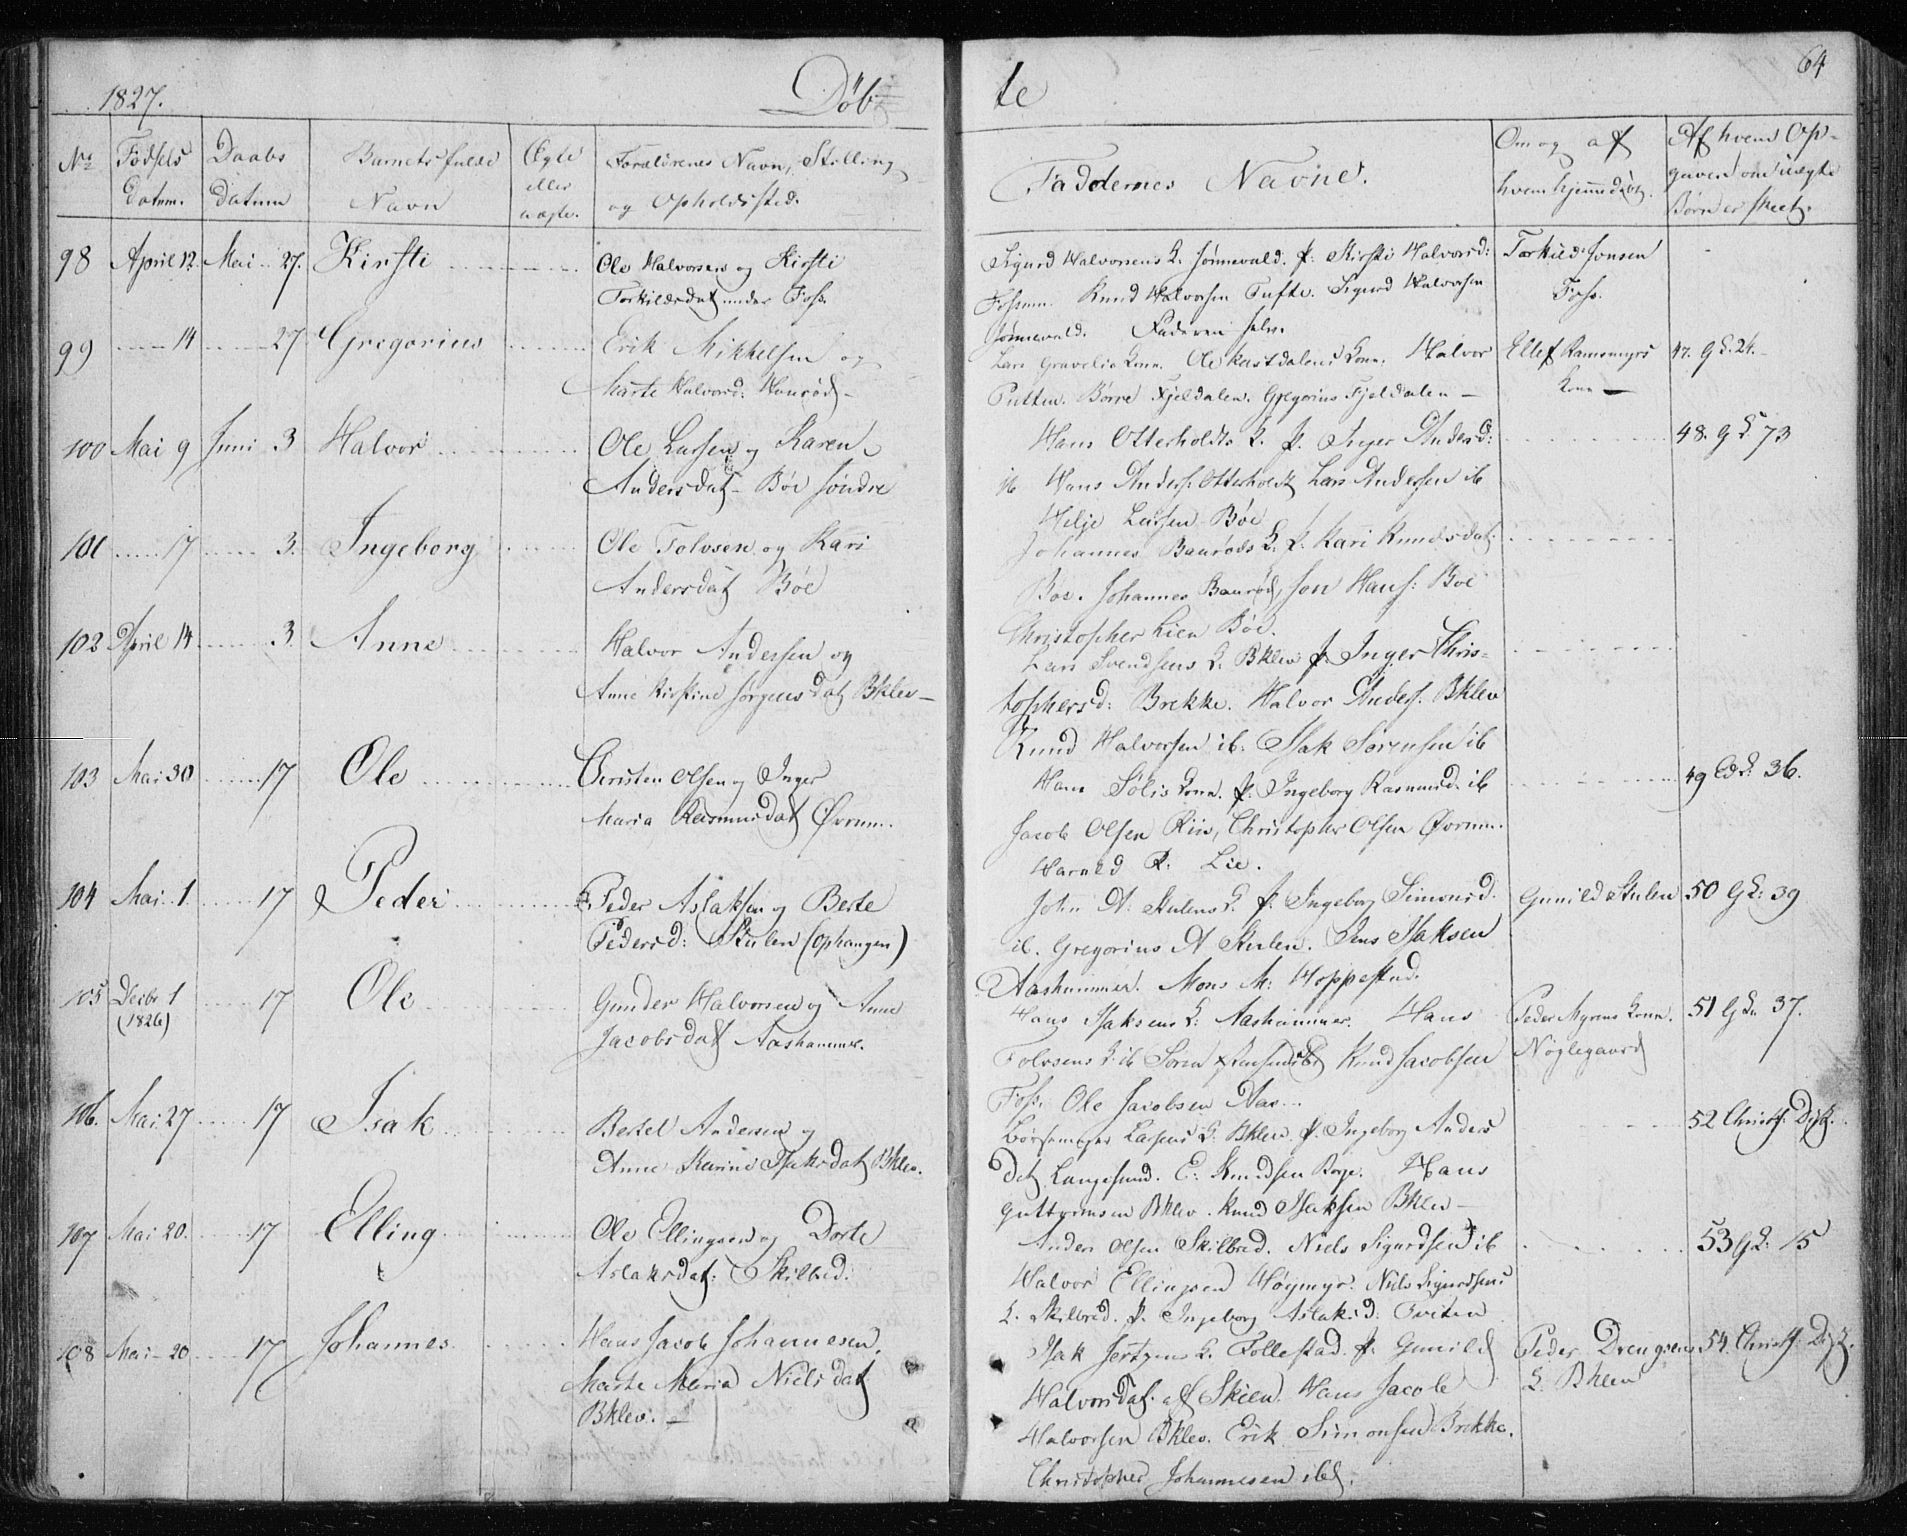 1827.
Döb-
te
64
No
Fødsels Datum.
Daabs Datum
Barnets fulde Navn
Ægte eller uægte.
Forældrenes Navn, Stilling og Opholdssted.
Faddernes Navne.
Om og af hvem hjemmedøbt.
Af hvem Opgaven om uægte Børn er skeet.
98 April 12. Mai 27. Kirsti
Ole Halvorsen og Kirsti
Torkildsdat under Foss.
Sigurd Halvorsens K. Jønnevald. p: Kirsti Halvorsd:
Fossum Knud Halvorsen Tufte. Sigurd Halvorsen
Jønnevald. Faderen selv.
Torkild Jonsen
Foss.
99 14 27 Gregorius
Erik Mikkelsen og
Marte Halvorsd:
Lars Gravelie Kone. Ole Kastdalens Kone. Halvor
Putten. Børre Fjeldalen. Gregorius Fjeldalen
Ellef Ramsmyrs
Kone
47. G L. 24.
100 Mai 9 Juni 3 Halvor
Ole Larsen og Karen
Andersdat Böe søndre
Hans Otterholdts K. p. Inger Andersd:
ib Hans Anders. Otterholdt Lars Andersen ib
Helje Larsen Böe
48. G L 73
101 17 3. Ingeborg
Ole Tolvsen og Kari
Andersdat Böe
Johannes Baurøds K. p. Kari Knudsdat.
Böe. Johannes Baurød, Jon Hans: Böe
Christopher Lien Böe.
102 April 14 3. Anne
Halvor Andersen og
Anne Kirstine Jørgensdat Bklev
Lars Svendsens K. Bklev p. Inger Chris-
tophersd: Brekke. Halvor Anders. Bklev
Knud Halvorsen ib. Isak Sørensen ib
103 Mai 30 17 Ole
Christen Olsen og Inger
Maria Rasmusdat Øvrum.
Hans Solis Kone. p. Ingeborg Rasmusd. ib
Jacob Olsen Riis, Christopher Olsen Øvrum.
Harald R. Lie.
49 36.
104 Mai 1 17 Peder
Peder Aslaksen og Berte
Pedersd: Stulen (Ophangen)
John A. Stulens K. p. Ingeborg Simonsd.
ib. Gregorius A Stulen. Jens Isaksen
Aashammer. Mons M: Hoppestad.
Gunild Stulen
50 G L: 39
105 Decbr 1 (1826) 17 Ole
Gunder Halvorsen og Anne
Jacobsdat Aashammer.
Hans Isaksens K: Aashammer. Hans
Tolvsens K. ib Søren Knud Jacobsen
Foss. Ole Jacobsen Aas.
Peder Myrens Kone.
Nøglegaard
51 G L. 37.
106. Mai 27 17 Isak
Bertel Andersen og
Anne Karine Isaksdat Bklev.
Larsens K. Bklev p. Ingeborg Anders
dat Langesund. E. Knudsen Borge. Hans
Guttormsen Bklev. Knud Isaksen Bklev
52 Christ: Dist.
107 Mai 20. 17 Elling
Ole Ellingsen og Dorte
Aslaksdat: Skilbred.
Anders Olsen Skilbred. Niels Sigurdsen ib
Halvor Ellingsen Høgmyr. Niels Sigurdsens
K. Skilbred. p. Ingeborg Aslaksd: Tveten
53 G L: 15
108 Mai 20 17 Johannes
Hans Jacob Johannesen.
Marte Maria Nielsdat
Bklev.
Isak K. Follestad. p. Gunild
Halvorsdat. af Skien. Hans Jacob
Halvorsen Bklev. Erik Simonsen Brekke.
Christopher Johannesen ibd.
Peder Drengsens
K. Bklev
54. Christ: Dist.